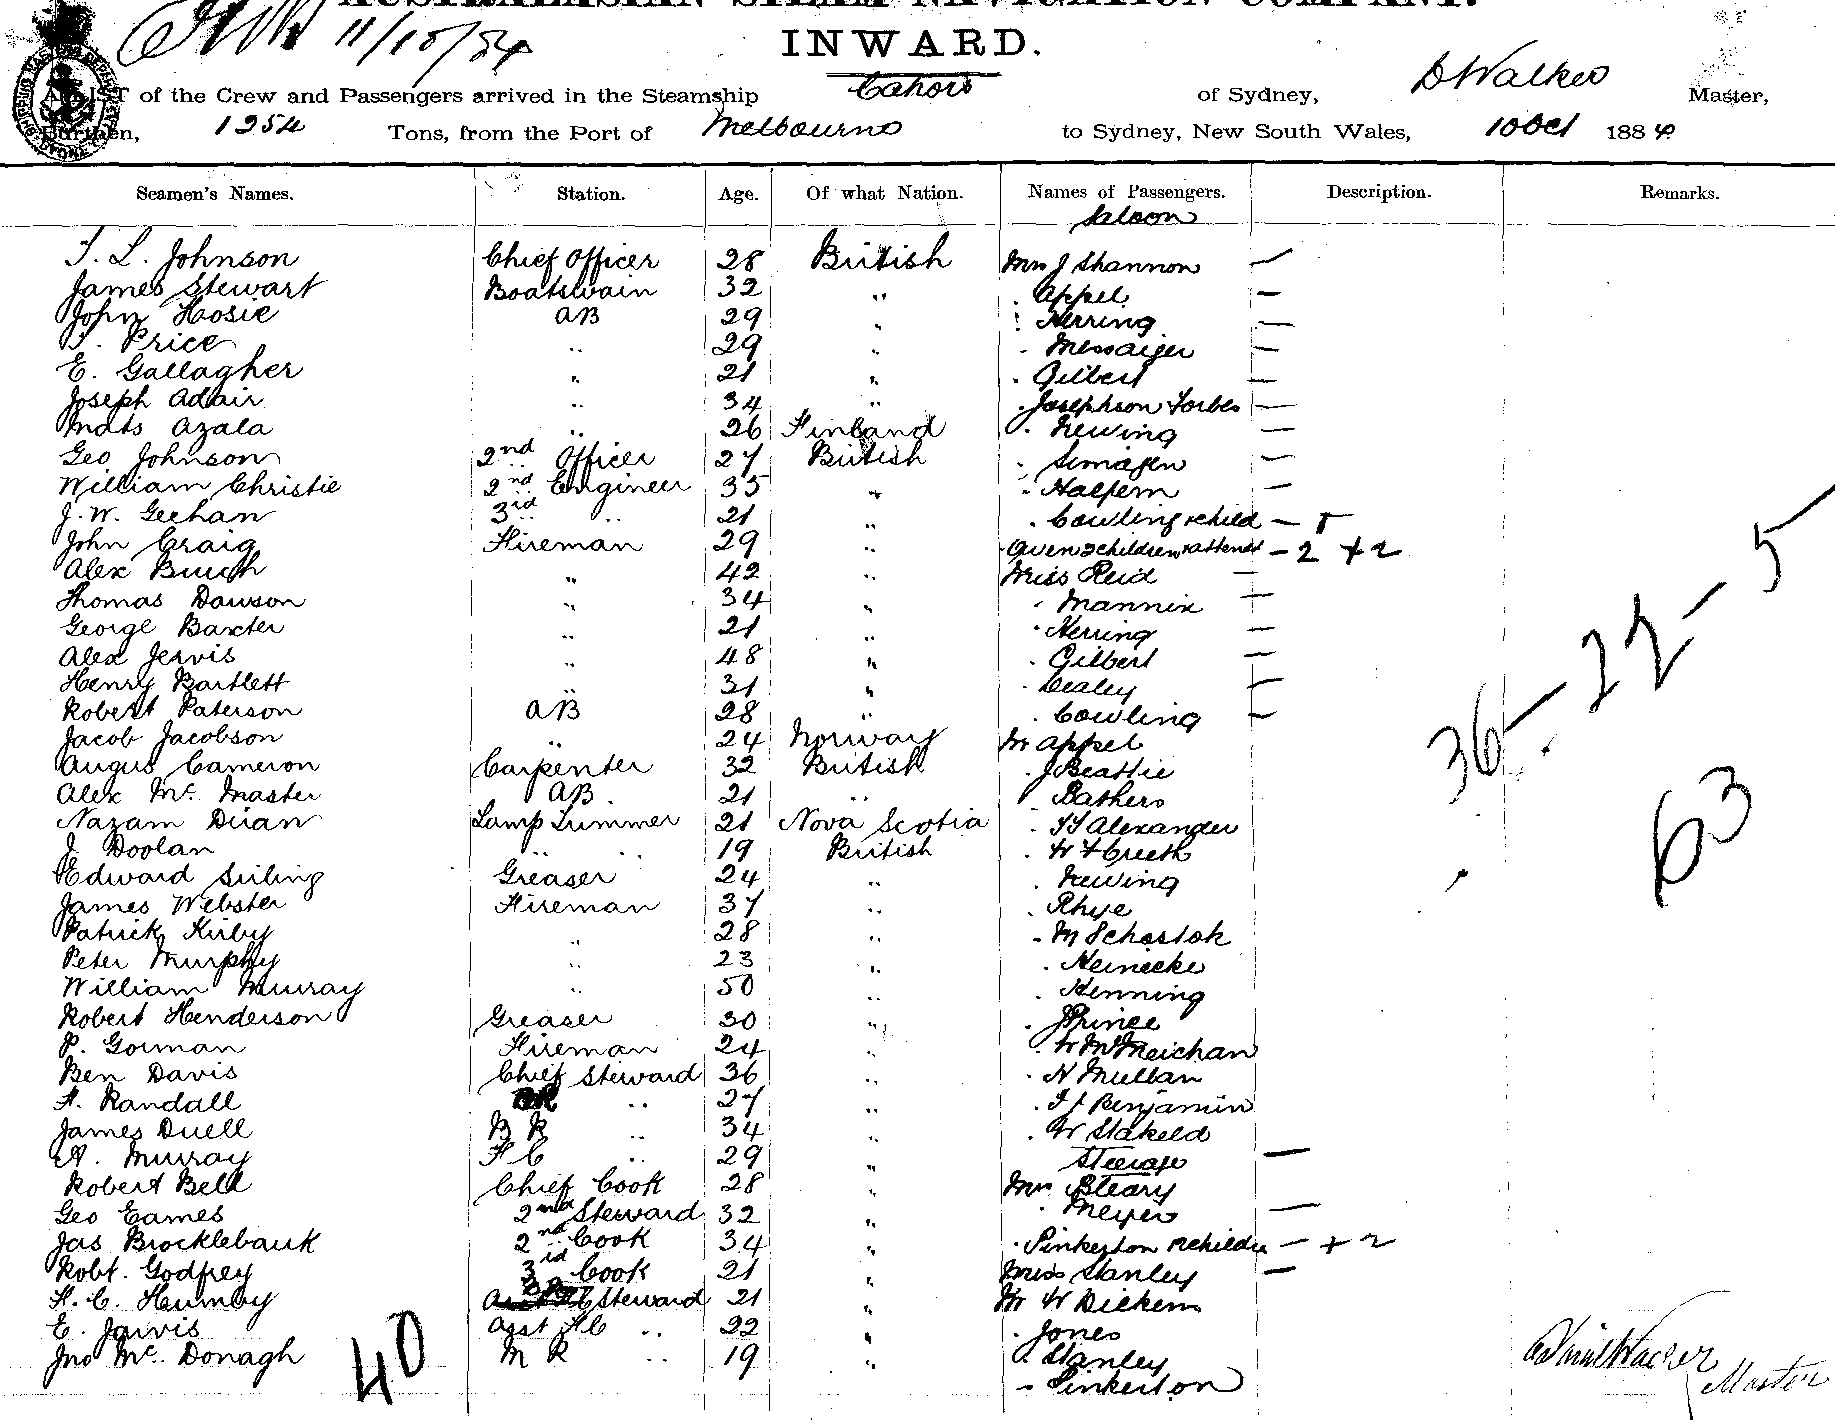 AUSTRALASIAN STEAM NAVIGATION COMPANY.
11/10/84
INWARD.
A LIST of the Crew and Passengers arrived in the Steamship Cahors of Sydney, D Walker Master,
Burthen, 1254 Tons, from the Port of Melbourne to Sydney, New South Wales, 10 Oct 1884
Seamen's Names. Station. Age. Of what Nation. Names of Passengers. Description. Remarks.
Saloon
T. L. Johnson Chief Officer 28 British Mrs J Shannon —
James Stewart Boatswain 32 " . Appel —
John Hosie AB 29 " . Herring —
T. Price " 29 " . Messaiger —
E. Gallagher " 21 " . Gilbert —
Joseph Adair " 34 " . Josephson Forbes —
Mats Azala " 26 Finland . Newing —
Geo Johnson 2nd Officer 27 British . —
William Christie 2nd Engineer 35 " . Halpern —
J. W. Geehan 3rd " 21 " . Cowling & child — 1
John Craig Fireman 29 " . Owen 2 children & attendt — 2 + 2
Alex Buich " 42 " Miss Reid —
Thomas Dawson " 34 " . Mannix —
George Baxter " 21 " . Herring —
Alex Jervis " 48 " . Gilbert —
Henry Bartlett " 31 " . Dealey —
Robert Paterson AB 28 " . Cowling —
Jacob Jacobson " 24 Norway Mr Appel
Angus Cameron Carpenter 32 British . J Beattie
Alex Mc. Master AB. 21 " . Bathers
Nazam Diran Lamp Trimmer 21 Nova Scotia . Alexander
J Doolan " " 19 British . W F Creeth
Edward Siiling Greaser 24 " . Newing
James Webster Fireman 37 " . Rhye
Patrick Kirby " 28 " . M Schostok
Peter Murphy " 23 " . Heinecke
William Murray " 50 " . Henning
Robert Henderson Greaser 30 " . J Prince
P. Gorman Fireman 24 " . W McMeichan
Ben Davis Chief Steward 36 " . N Mullan
H. Randall " 27 " . Benjamin
James Duell B R " 34 " . W Stakeld
A. Murray F C " 29 " Steerage —
Robert Bell Chief Cook 28 " Mrs Bleary
Geo Eames 2nd Steward 32 " . Meyer —
Jas Brocklebank 2nd Cook 34 " . Pinkerton 2 childn — + 2
Robt. Godfrey 3rd Cook 21 " Miss Stanley —
H. C. Humby Steward 21 " Mr W Dickens
E. Jarvis Asst FC " 22 " . Jones
Jno Mc. Donagh M R " 19 " . Stanley
. Pinkerton
40
36 — 22 — 5
63
Daniel Walker
Master